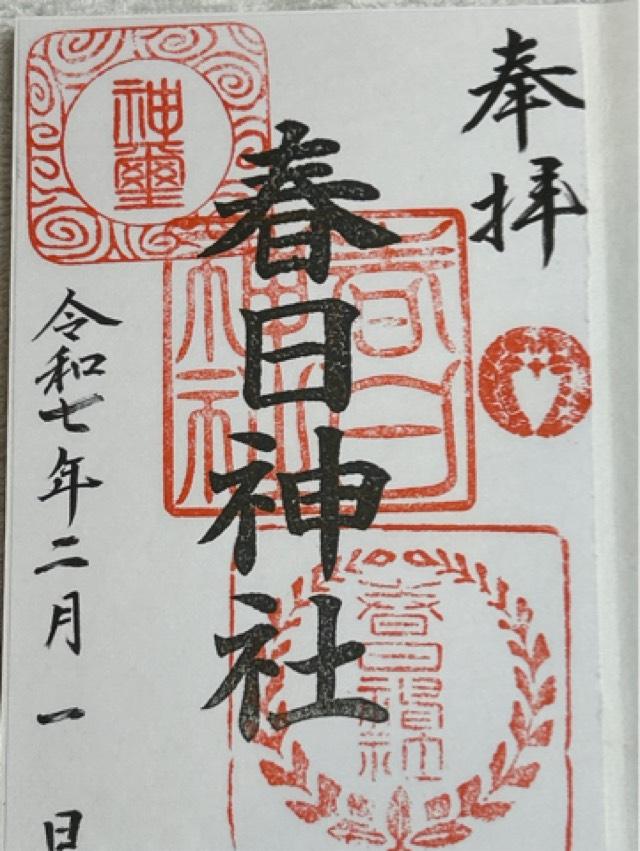 奉拝
春日神社
令和七年二月一日
神璽
春日神社
春日神社